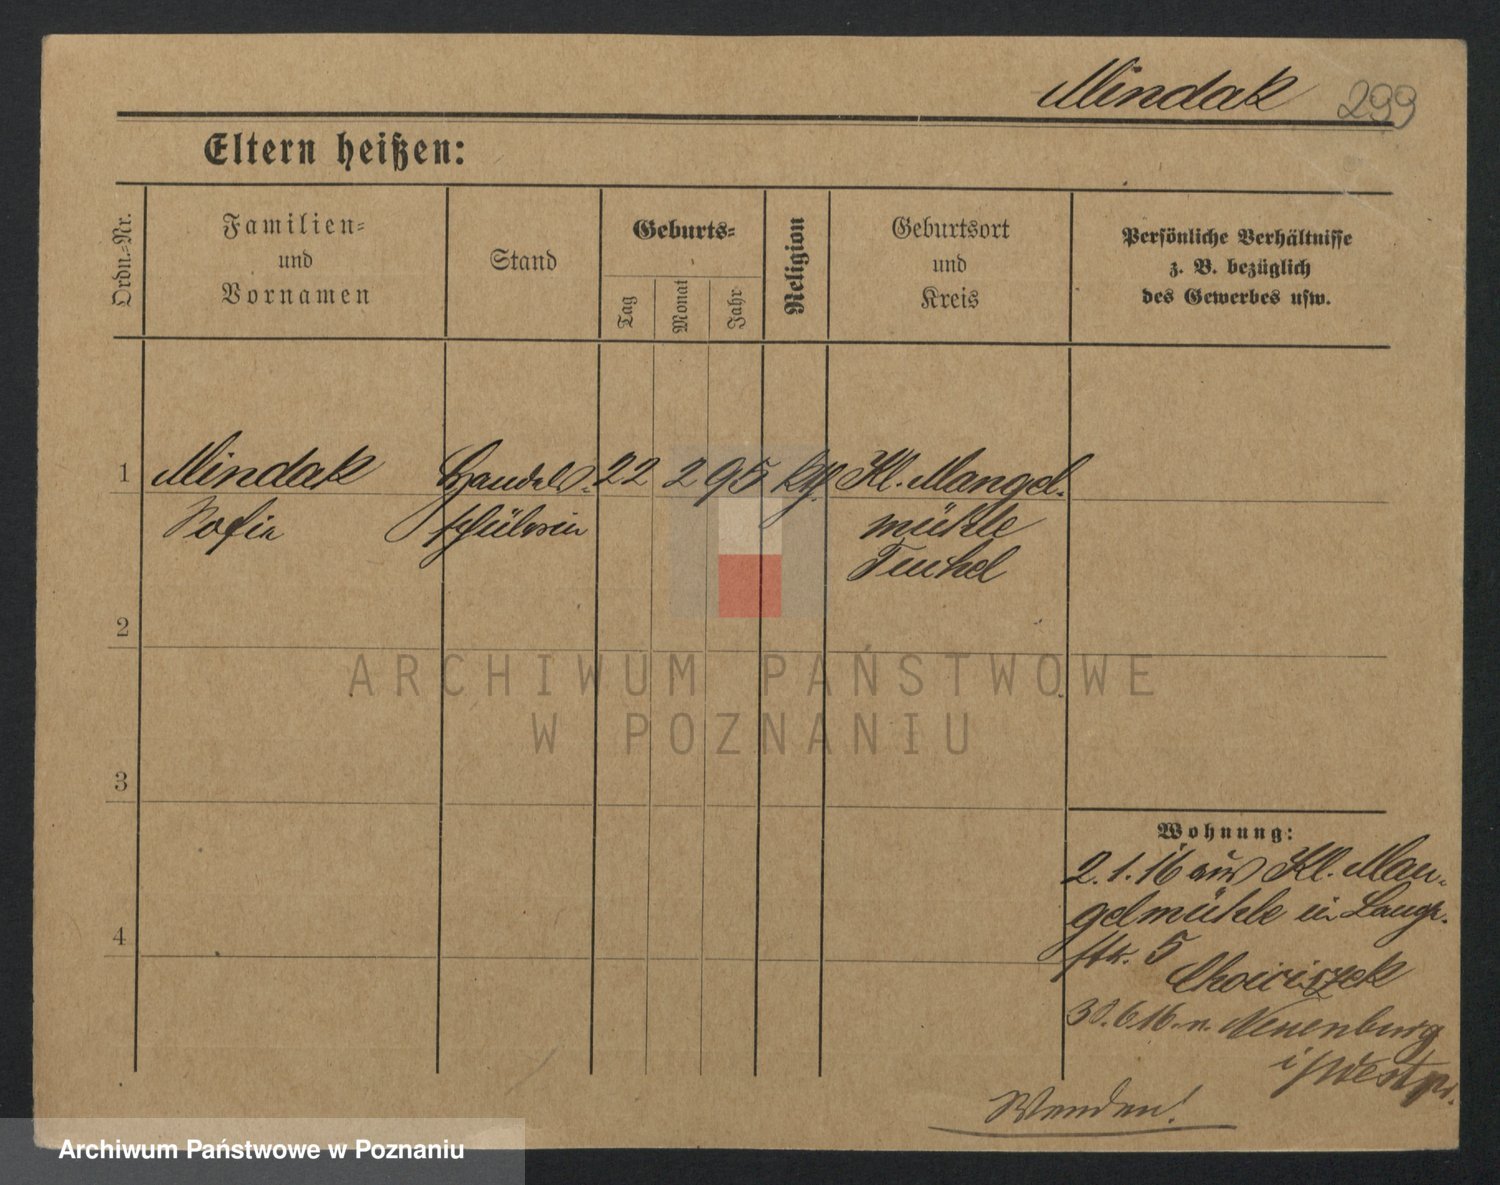 Mindak 299
Eltern heißen:
Ordn.-Nr.
Familien-
und
Vornamen
Stand
Geburts-
Tag
Monat
Jahr
Religion
Geburtsort
und
Kreis
Persönliche Verhältnisse
z. B. bezüglich
des Gewerbes usw.
1 Mindak Handels- 22 2 95 kth. Kl. Mangel-
Sofia schülerin mühle
Tuchel
2
ARCHIWUM PAŃSTWOWE
W POZNANIU
3
Wohnung:
2.1.16 aus Kl. Man-
gelmühle in
4
str. 5
30.6.16 n. Neuenburg
i/Westpr.
Wenden!
Archiwum Państwowe w Poznaniu